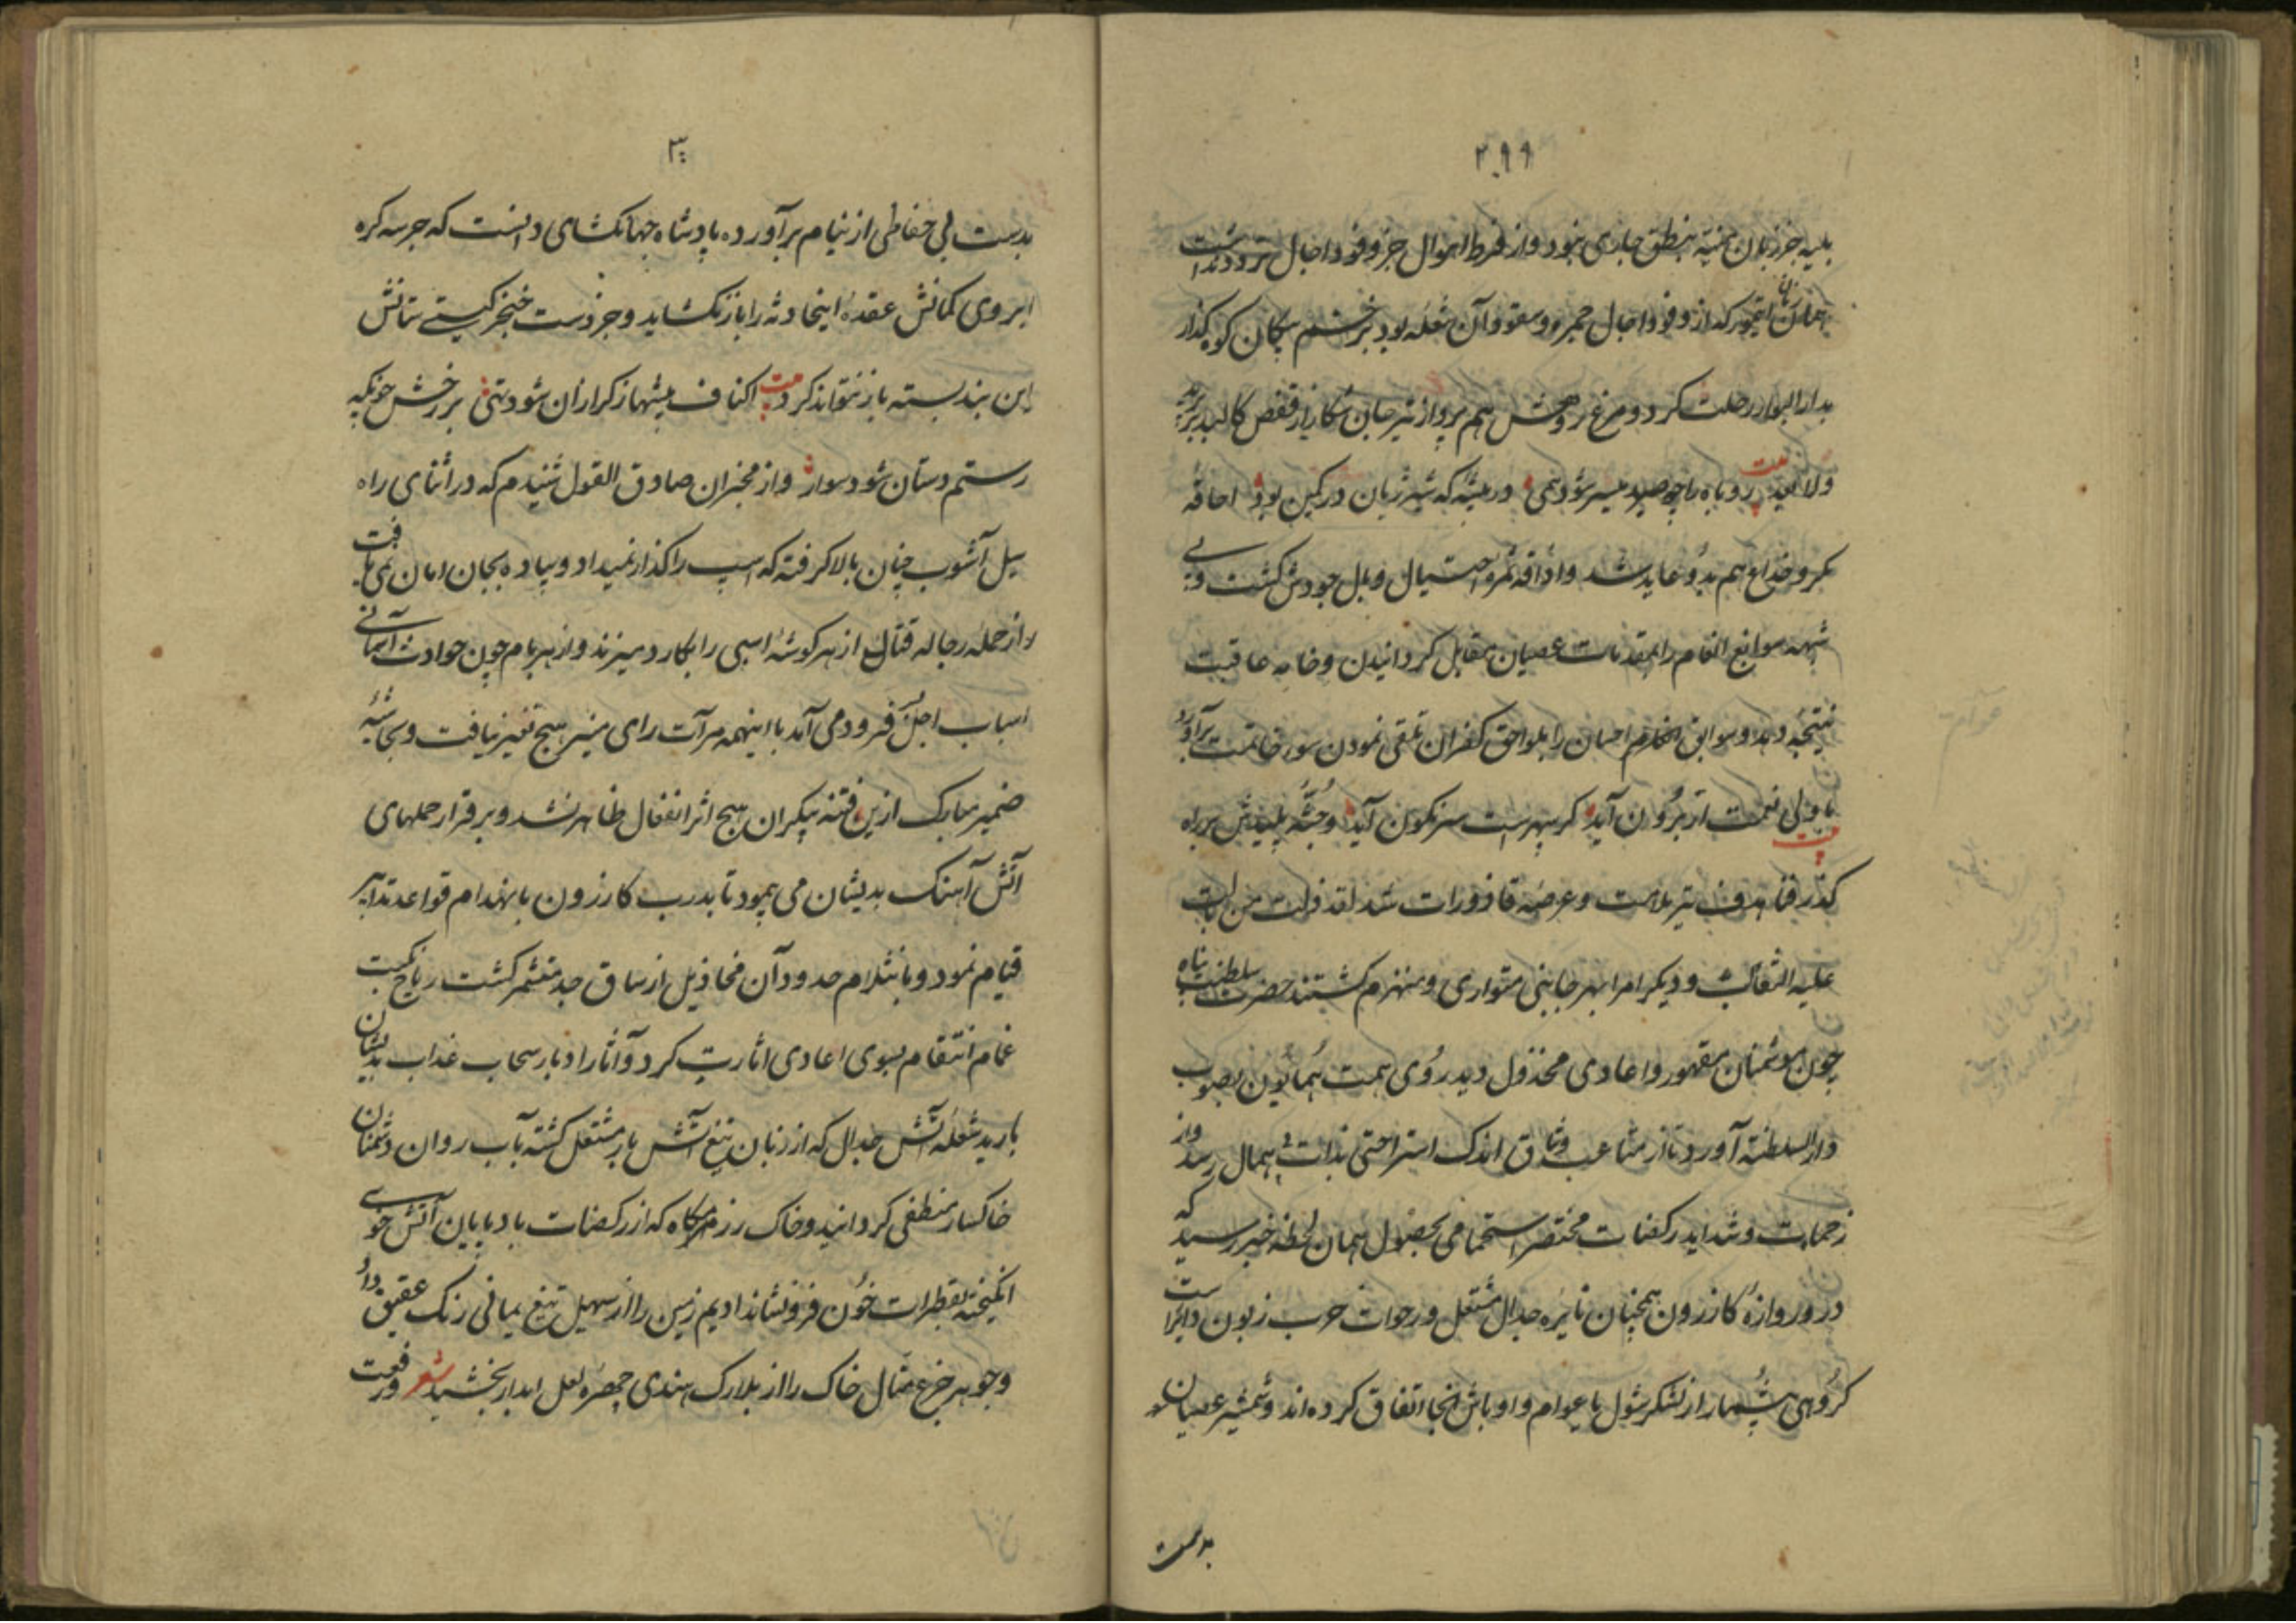 ۲۹۹
بلیه جز زبان منیّه بنطق جاری نبود و از فرط اهوال جز وفود اجال تردد نداشت
همان زمان ایتمور که از وفود اجال جمره و سقود آن شعله بود بزخم پیکان کوه گذار
بدار البوار رحلت کرد و مرغ روحش هم پرواز تیر جان شکار از قفص کالبد
ولا بعید بیت روباه را چو صید میسر شود نمی در بیشه که شیر ژیان در کمین بود احاقه
مکر و خداع هم بدو عاید شد و اذاقه ثمره احتیال وبال جودش گشت و بی
شبهه سوابغ انعام را بمقدمات عصیان مقابل گردانیدن وخامه عاقبت
نتیجه دهد و سوابق احسان را بلواحق کفران تلقی نمودن سوء خاتمت برآورد
با ولی نعمت ار برون آید بیت گر سپهرست سرنگون آید و جثه پلیدش بر راه
گذر هدف تیر ملامت و عرضه قاذورات شد لقد ذلت من بالت
علیه الثعالب و دیگر امرا بهر جانبی متواری و منهزم گشتند حضرت سلطنت پناه
چون دشمنان مقهور و اعادی مخذول دید روی همت همایون بصوب
دار السلطنه آورد تا از متاعب وثاق اندک استراحتی بذات بی همال رسد و از
زحمات و شداید رکضات مختصر استحمامی بحصول همان لحظه خبر رسید که
در دروازه کازرون همچنان نایره جدال مشتعل و رحوات حرب زبون دایراست
گروهی بیشمار از لشکر شول با عوام و اوباش آنجا اتفاق کرده اند و شمشیر عصیان
بدست
۳۰۰
بدست بی حفاظی از نیام برآورده پادشاه جهانگشای دانست که جز سه گره
ابروی کمانش عقده اینحادثه را باز نگشاید و جز دست خنجر گیتی ستانش
این بند بسته باز نتواند کرد بیت اکناف بیشها ز گرازان شود تهی بر رخش چونکه
رستم دستان شود سوار و از مخبران صادق القول شنیدم که در اثنای راه
سیل آشوب چنان بالا گرفته که اسپ را گذار نمیداد و پیاده بجان امان نمی یافت
و از حمله رجاله قتال از هر گوشه اسبی را بکارد میزدند و از هر بام چون حوادث آسمانی
اسباب اجل فرود می آمد با اینهمه مرآت رای منیر هیچ تغیر نیافت و بحاشیه
ضمیر مبارک ازین فتنه بیکران هیچ اثر انفعال ظاهر نشد و برقرار حملهای
آتش آهنگ بدیشان می پیمود تا بدرب کازرون بانهدام قواعد تدابیر
قیام نمود و بانثلام حدود آن مخاذیل از ساق جد متشمر گشت ریاح نکبت
غمام انتقام بسوی اعادی اثارت کرد و آثار ادبار سحاب عذاب بدیشان
بارید شعله آتش جدال که از زبان تیغ آتش بار مشتعل گشته بآب روان دشمنان
خاکسار منطفی گردانید و خاک رزمگاه که از رکضات بادپایان آتش خوی
انگیخته بقطرات خون فرونشاند ادیم زمین را از سهیل تیغ یمانی رنگ عقیق داد
و جوهر جزع مثال خاک را از بلارک هندی چهره لعل آبدار بخشید شعر ورفعت